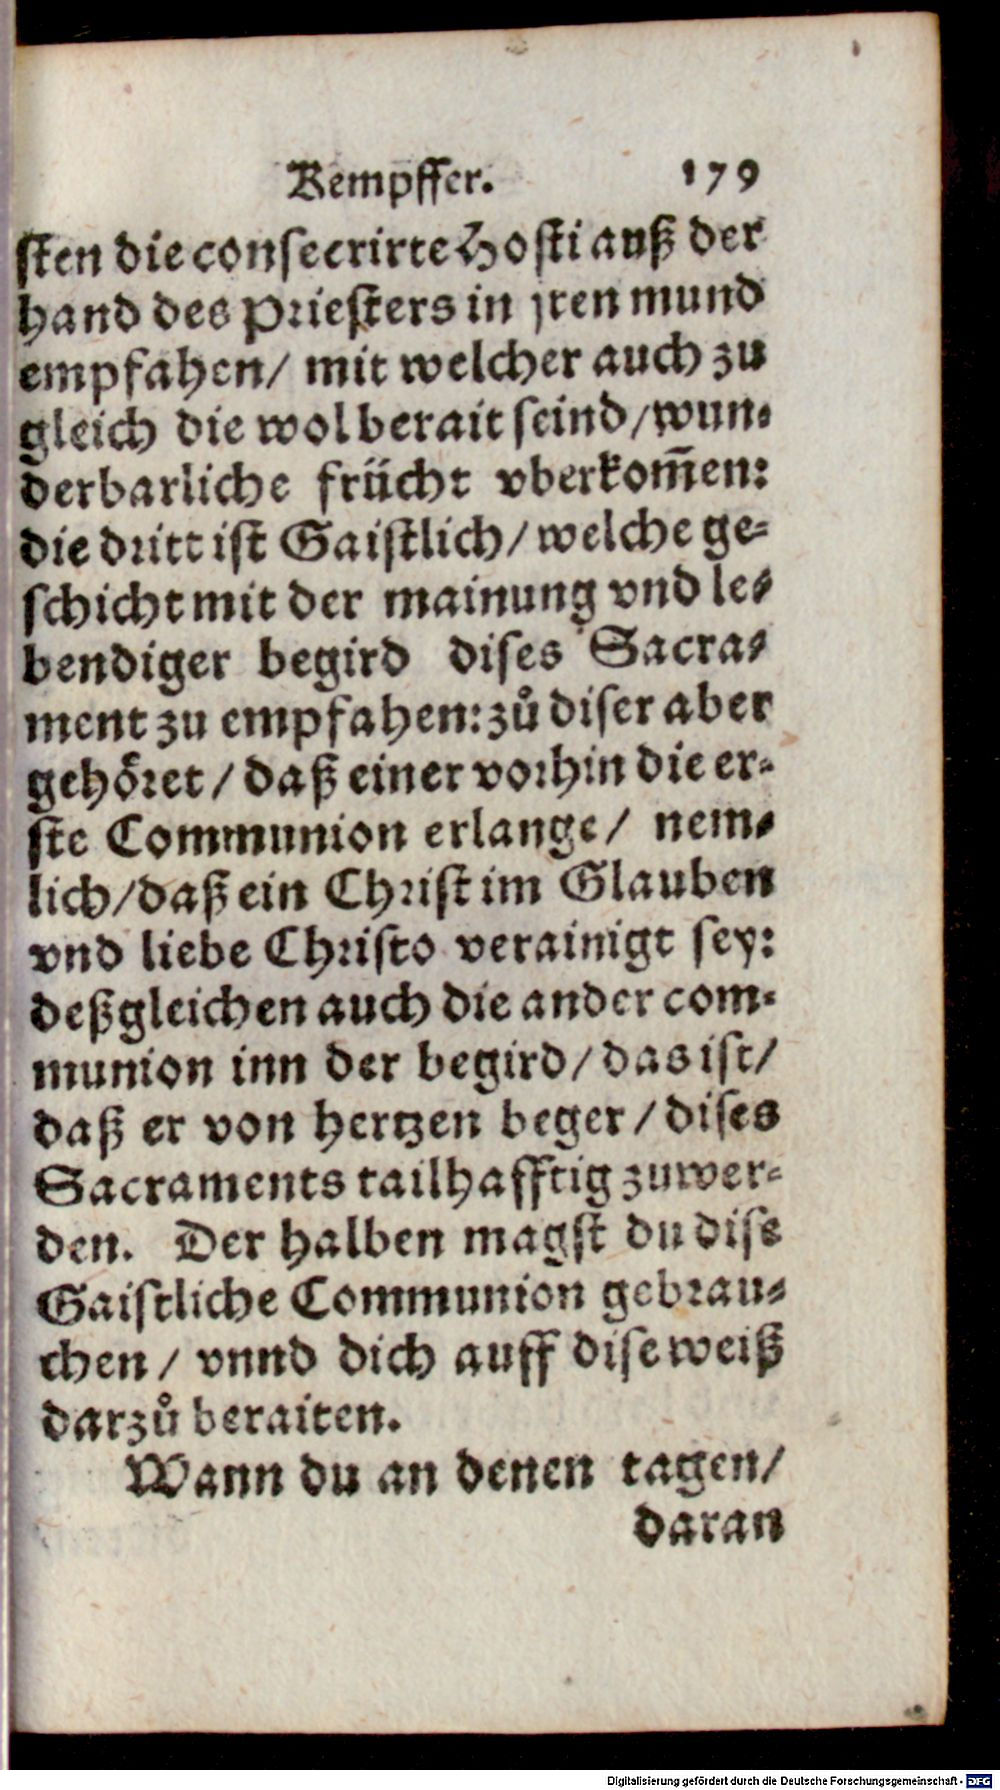 Kempffer. 179
sten die consecrirte Hosti auß der
hand des Priesters in jren mund
empfahen/ mit welcher auch zu
gleich die wol berait seind/ wun-
derbarliche frücht vberkom̃en:
die dritt ist Gaistlich/ welche ge-
schicht mit der mainung vnd le-
bendiger begird dises Sacra-
ment zu empfahen: zů diser aber
gehöret/ daß einer vorhin die er-
ste Communion erlange/ nem-
lich/ daß ein Christ im Glauben
vnd liebe Christo verainigt sey:
deßgleichen auch die ander com-
munion inn der begird/ das ist/
daß er von hertzen beger/ dises
Sacraments tailhafftig zuwer-
den. Der halben magst du dise
Gaistliche Communion gebrau-
chen/ vnnd dich auff dise weiß
darzů beraiten.
Wann du an denen tagen/
daran
Digitalisierung gefördert durch die Deutsche Forschungsgemeinschaft - DFG